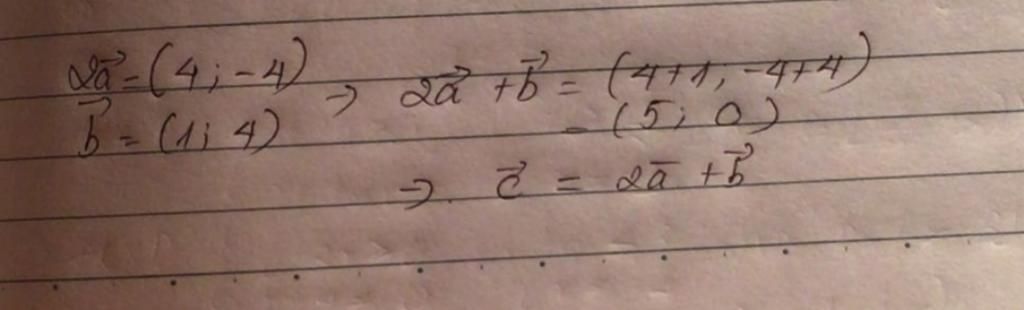 2a⃗ = (4; -4)
b⃗ = (1; 4)
→ 2a⃗ + b⃗ = (4+1; -4+4)
= (5; 0)
→ c⃗ = 2a⃗ + b⃗